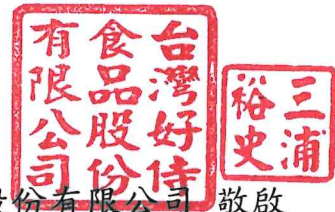 台灣好侍
食品股份
有限公司
三浦
裕史
股份有限公司 敬啟